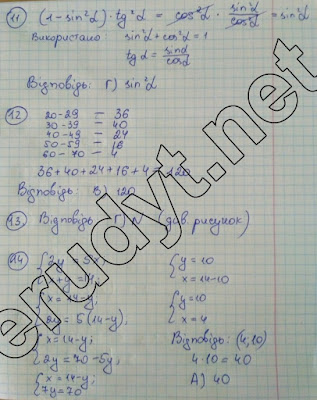 11 (1-sin²α)·tg²α = cos²α · sin²α/cos²α = sin²α
Використано: sin²α + cos²α = 1
tg α = sinα/cosα
Відповідь: Г) sin²α
12 20-29 = 36
30-39 = 40
40-49 = 24
50-59 = 16
60-70 = 4
36+40+24+16+4=120
Відповідь: В) 120
13. Відповідь Г) N (див. рисунок)
14 {2y = 5x; {y = 10
x+y=14; x = 14-10
{x = 14-y; {y=10
2y = 5(14-y); x = 4
{x = 14-y; Відповідь: (4;10)
2y = 70-5y; 4·10 = 40
{x = 14-y; А) 40
7y=70
erudyt.net